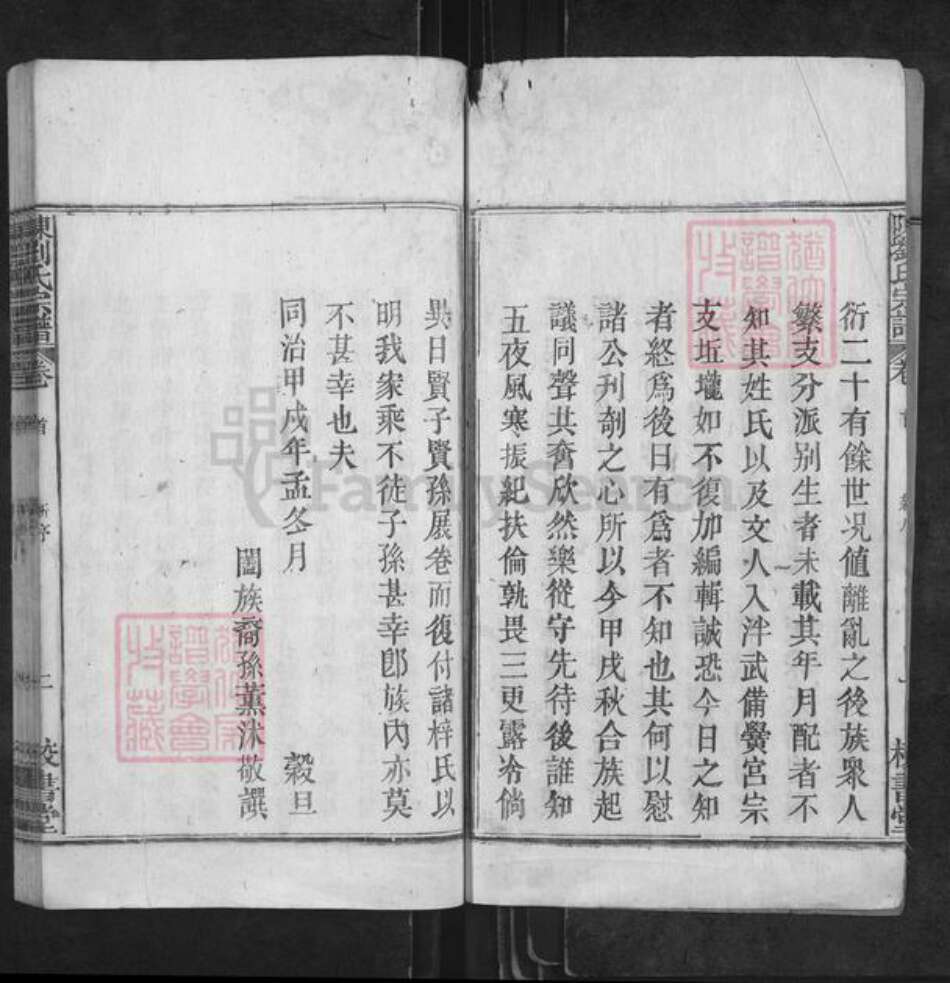 衍二十有餘世况値離亂之後族衆人
繁支分派别生者未載其年月配者不
知其姓氏以及文人入泮武備黌宮宗
支坵壠如不復加編輯誠恐今日之知
者終爲後日有爲者不知也其何以慰
諸公刋剞之心所以今甲戌秋合族起
議同聲共奮欣然樂從守先待後誰知
五夜風寒振紀扶倫孰畏三更露冷倘
異日賢子賢孫展卷而復付諸梓氏以
明我家乘不徒子孫甚幸卽族內亦莫
不甚幸也夫
同治甲戌年孟冬月 穀旦
闔族裔孫薰沐敬譔
劉氏宗譜 卷 首 新序 二 校書堂
譜學會
收藏
FamilySearch